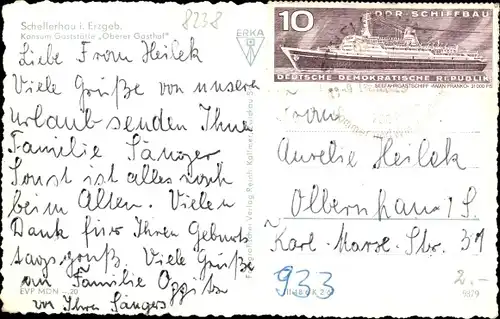 Schellerhau i. Erzgeb.
Konsum Gaststätte „Oberer Gasthof"
8238
ERKA
10
DDR-SCHIFFBAU
DEUTSCHE DEMOKRATISCHE REPUBLIK
SEEFAHRGASTSCHIFF «IWAN FRANKO» 21 000 PS
Liebe Frau Heilek
Viele Grüße von unserem
Urlaub senden Ihnen
Familie Sänger
Sonst ist alles noch
beim Alten. Vielen
Dank für Ihren Geburts
tagsgruß. Viele Grüße
an Familie
von Ihren Sängers
EVP MDN -.20
Frau
Aurelie Heilek
Olbernhau/S.
Karl-Marx-Str. 31
933
2.-
9379